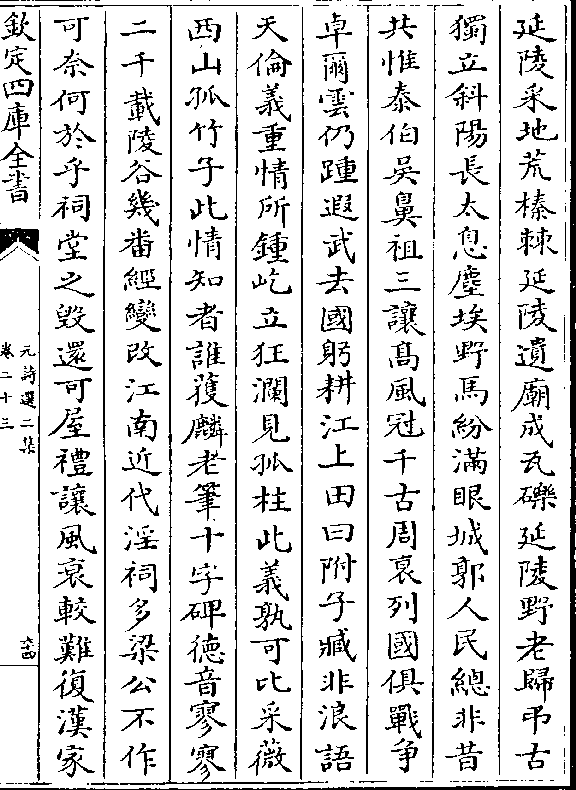 延陵采地荒榛棘延陵遺廟成瓦礫延陵野老歸弔古
獨立斜陽長太息塵埃野馬紛滿眼城郭人民總非昔
共惟泰伯吳鼻祖三讓髙風冠千古周衰列國俱戰争
卓爾雲仍踵遐武去國躬耕江上田曰附子臧非浪語
天倫義重情所鍾屹立狂瀾見孤柱此義孰可比采薇
西山孤竹子此情知者誰獲麟老筆十字碑德音寥寥
二千載陵谷幾番經變改江南近代淫祠多梁公不作
可奈何於乎祠堂之毀還可屋禮讓風衰較難復漢家
欽定四庫全書
元詩選二集
卷二十三
六四